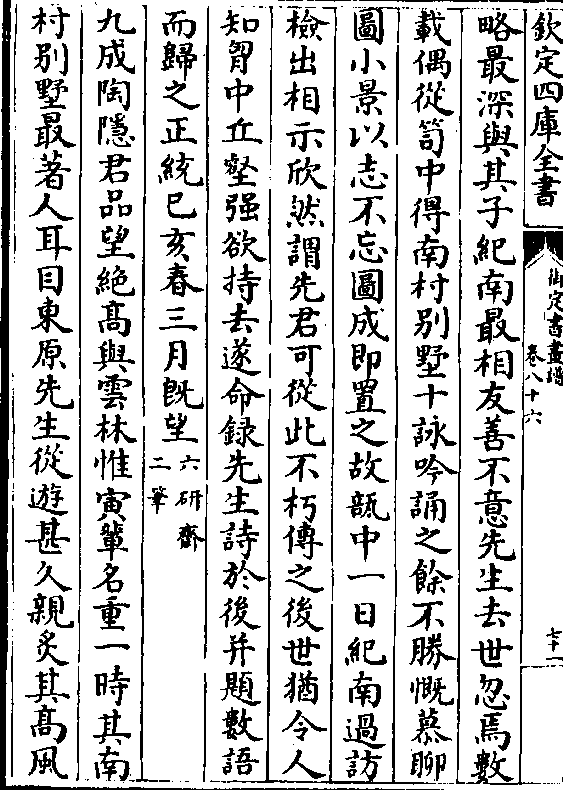 欽定四庫全書
御定書畫譜
卷八十六
七十一
略最深與其子紀南最相友善不意先生去世忽焉數
載偶從笥中得南村别墅十詠吟誦之餘不勝慨慕聊
圖小景以志不忘圖成即置之故瓿中一日紀南過訪
檢出相示欣然謂先君可從此不朽傳之後世猶令人
知胷中丘壑强欲持去遂命録先生詩於後并題數語
而歸之正統己亥春三月旣望
六研齋
二筆
九成陶隱君品望絶髙與雲林惟寅輩名重一時其南
村别墅最著人耳目東原先生從遊甚久親炙其髙風